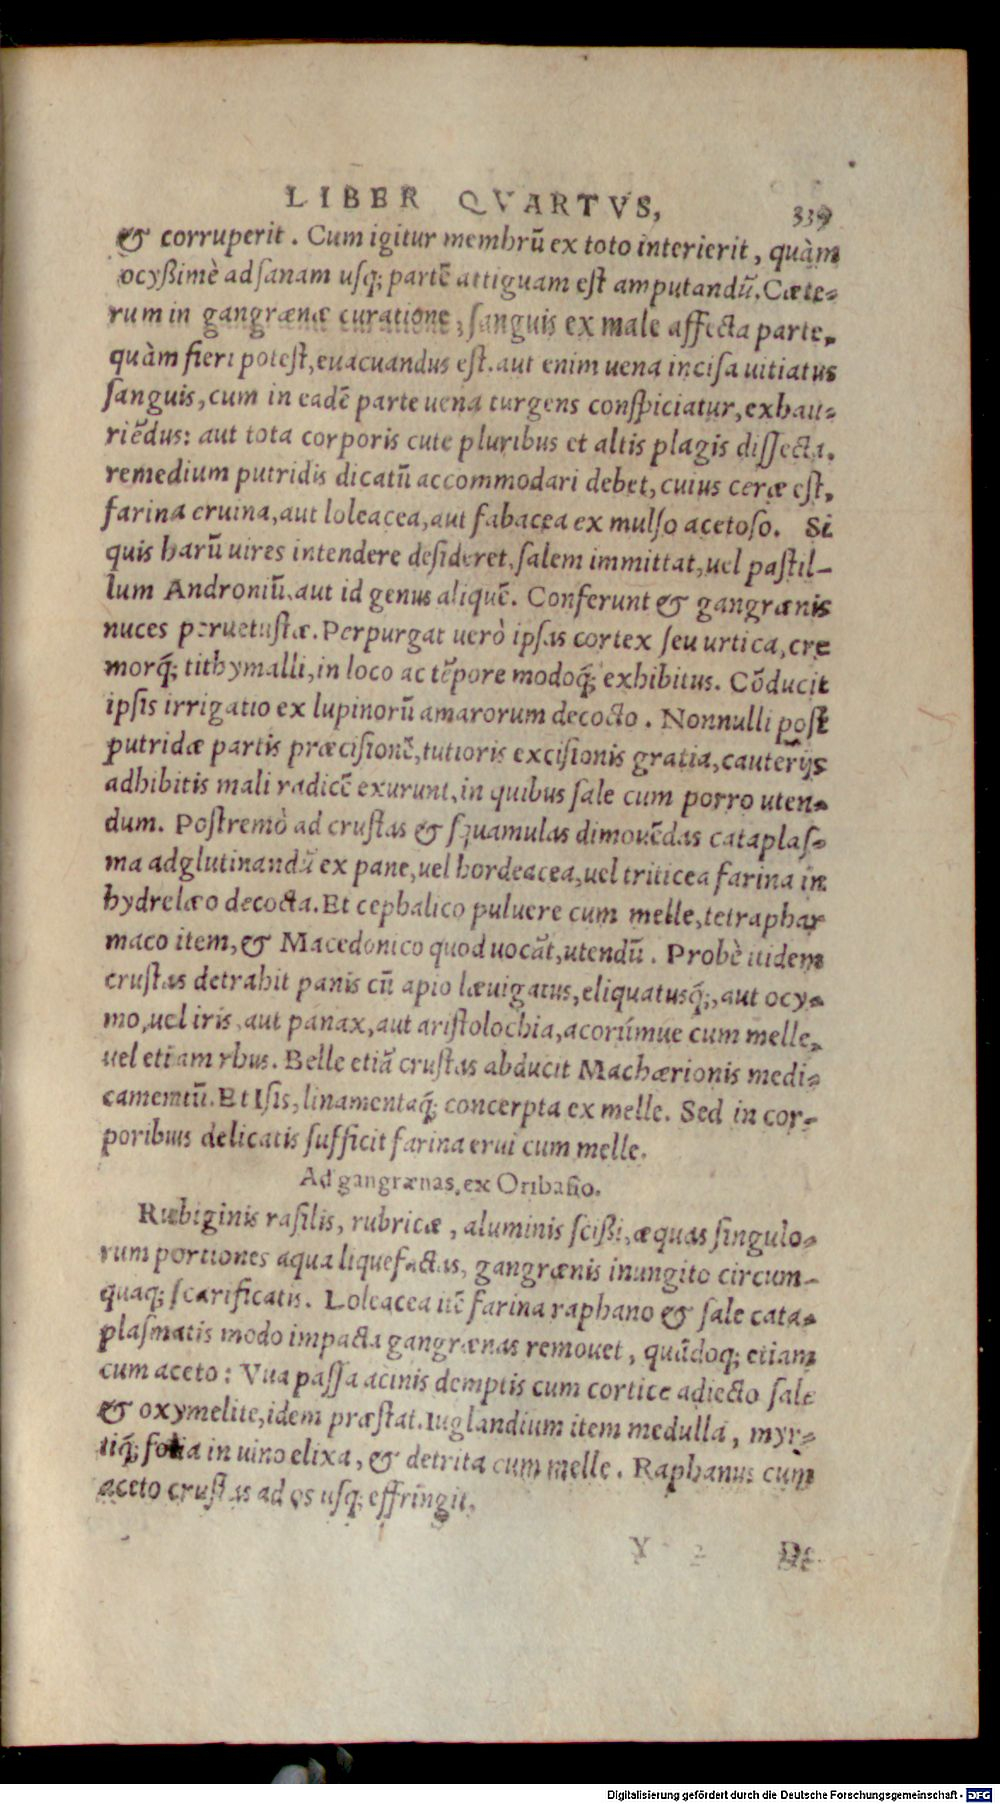 LIBER QVARTVS, 339
& corruperit. Cum igitur membrũ ex toto interierit, quàm
ocyßimè ad ſanam uſq; partẽ attiguam eſt amputandũ. Cæte-
rum in gangrænæ curatione, ſanguis ex male affecta parte,
quàm fieri poteſt, euacuandus eſt. aut enim uena inciſa uitiatus
ſanguis, cum in eadẽ parte uena turgens conſpiciatur, exhau-
riẽdus: aut tota corporis cute pluribus et altis plagis diſſecta,
remedium putridis dicatũ accommodari debet, cuius ceræ eſt,
farina eruina, aut loleacea, aut fabacea ex mulſo acetoſo. Si
quis harũ uires intendere deſideret, ſalem immittat, uel paſtil-
lum Androniũ, aut id genus aliquẽ. Conferunt & gangrænis
nuces peruetuſtæ. Perpurgat uerò ipſas cortex ſeu urtica, cre
morq́; tithymalli, in loco ac tẽpore modoq́; exhibitus. Cõducit
ipſis irrigatio ex lupinorũ amarorum decocto. Nonnulli poſt
putridæ partis præciſionẽ, tutioris exciſionis gratia, cauterijs
adhibitis mali radicẽ exurunt, in quibus ſale cum porro uten-
dum. Poſtremò ad cruſtas & ſquamulas dimouẽdas cataplaſ-
ma adglutinandũ ex pane, uel hordeacea, uel triticea farina in
hydrelæo decocta. Et cephalico puluere cum melle, tetraphar
maco item, & Macedonico quod uocãt, utendũ. Probè itidem
cruſtas detrahit panis cũ apio læuigatus, eliquatusq́;, aut ocy-
mo, uel iris, aut panax, aut ariſtolochia, acorúmue cum melle,
uel etiam rhus. Belle etiã cruſtas abducit Machærionis medi-
camentũ. Et Iſis, linamentaq́; concerpta ex melle. Sed in cor-
poribus delicatis ſufficit farina erui cum melle.
Ad gangrænas, ex Oribaſio.
Rubiginis raſilis, rubricæ, aluminis ſcißi, æquas ſingulo-
rum portiones aqua liquefactas, gangrænis inungito circum-
quaq; ſcarificatis. Loleacea itẽ farina raphano & ſale cata-
plaſmatis modo impacta gangrænas remouet, quãdoq; etiam
cum aceto: Vua paſſa acinis demptis cum cortice adiecto ſale
& oxymelite, idem præſtat. Iuglandium item medulla, myr-
tiq́; folia in uino elixa, & detrita cum melle. Raphanus cum
aceto cruſtas ad os uſq; effringit.
Y 2 De
Digitalisierung gefördert durch die Deutsche Forschungsgemeinschaft - DFG